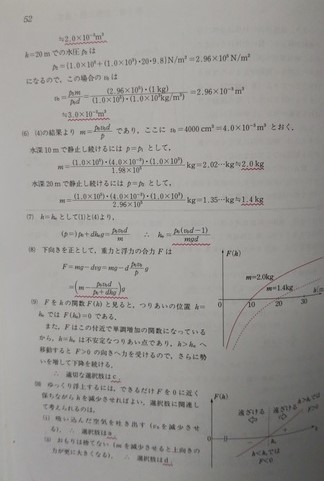 52
≒2.0×10⁻³m³
h=20mでの水圧p₀は
p₀=(1.0×10⁵+(1.0×10³)・20・9.8)N/m²=2.96×10⁵N/m²
になるので、この場合のv₀は
≒3.0×10⁻³m³
(6) (4)の結果より m=p₀v₀d/p であり、ここにv₀=4000cm³=4.0×10⁻³m³とおく。
水深10mで静止し続けるにはp=p₁として、
m=(1.0×10⁵)・(4.0×10⁻³)・(1.0×10³)/1.98×10⁵ kg=2.02…kg≒2.0kg
水深20mで静止し続けるにはp=p₂として、
m=(1.0×10⁵)・(4.0×10⁻³)・(1.0×10³)/2.96×10⁵ kg=1.35…kg≒1.4kg
(7) h=h₀として(1)と(4)より、
(p=)p₀+dh₀g=p₀v₀d/m ∴ h₀=p₀(v₀d−1)/mgd
(8) 下向きを正として、重力と浮力の合力Fは
F=mg−dvg=mg−d p₀v₀/p g
=(m−p₀v₀d/p₀+dhg)g
(9) Fをhの関数F(h)と見ると、つりあいの位置h=
h₀ではF(h₀)=0である。
また、Fはこの付近で単調増加の関数になっている
から、h=h₀は不安定なつりあい点であり、h>h₀へ
移動するとF>0の向きへ力を受けるので、さらに勢
いを増して下降を続ける。
∴ 適切な選択肢はc
(10) ゆっくり浮上するには、できるだけFを0に近く
保ちながらhを減少させればよい。選択肢に関連し
て考えられるのは、
(i) 吸い込んだ空気を吐き出す(v₀を減少させ
る)。 ∴ 選択肢はa
(ii) おもりは捨てない(mを減少させると上向きの
力が更に大きくなる)。 ∴ 選択肢はd
F(h)
m=2.0kg
m=1.4kg
0
10
20
30
h
F(h)
遠ざける
遠ざける
h>h₀で
F>0
h
h₀
h<h₀で
F<0